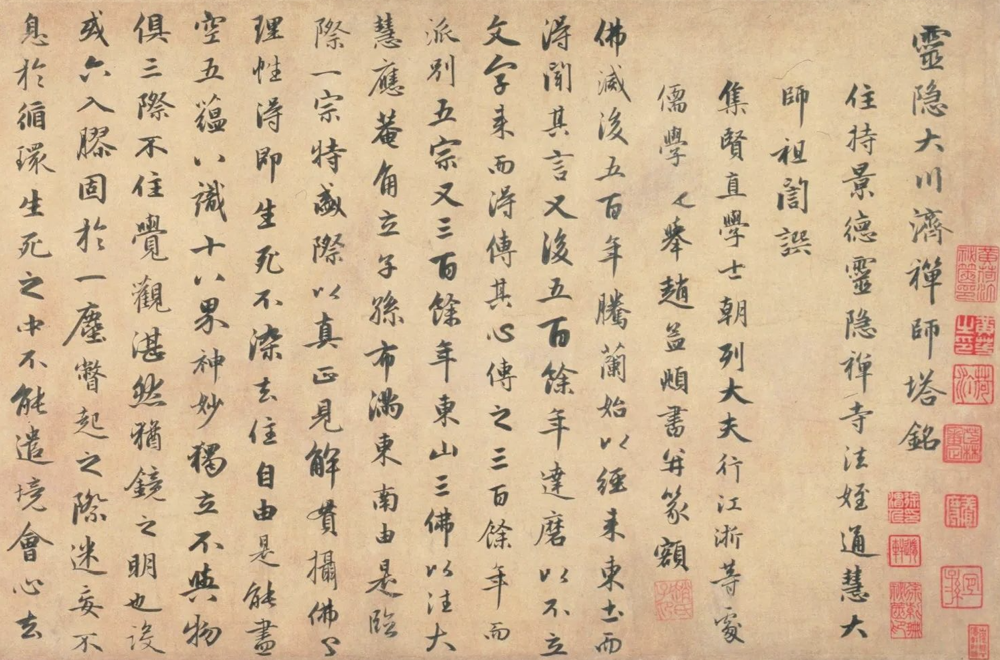 靈隐大川濟禪師塔銘
住持景德靈隐禅寺法姪通慧大
師祖誾譔
集賢直學士朝列大夫行江浙等處
儒學 舉趙孟頫書并篆額
佛滅後五百年騰蘭始以經来東土而
得聞其言又後五百餘年達磨以不立
文字来而得傳其心傳之三百餘年而
派别五宗又三百餘年東山三佛以法大
慧應菴角立子孫布滿東南由是臨
際一宗特盛際以真正見解貫攝佛〻
理性得即生死不染去住自由是能盡
空五藴八識十八界神妙獨立不與物
俱三際不住覺觀湛然猶鏡之明也設
或六入膠固於一塵瞥起之際迷妄不
息於循環生死之中不能遣境會心去